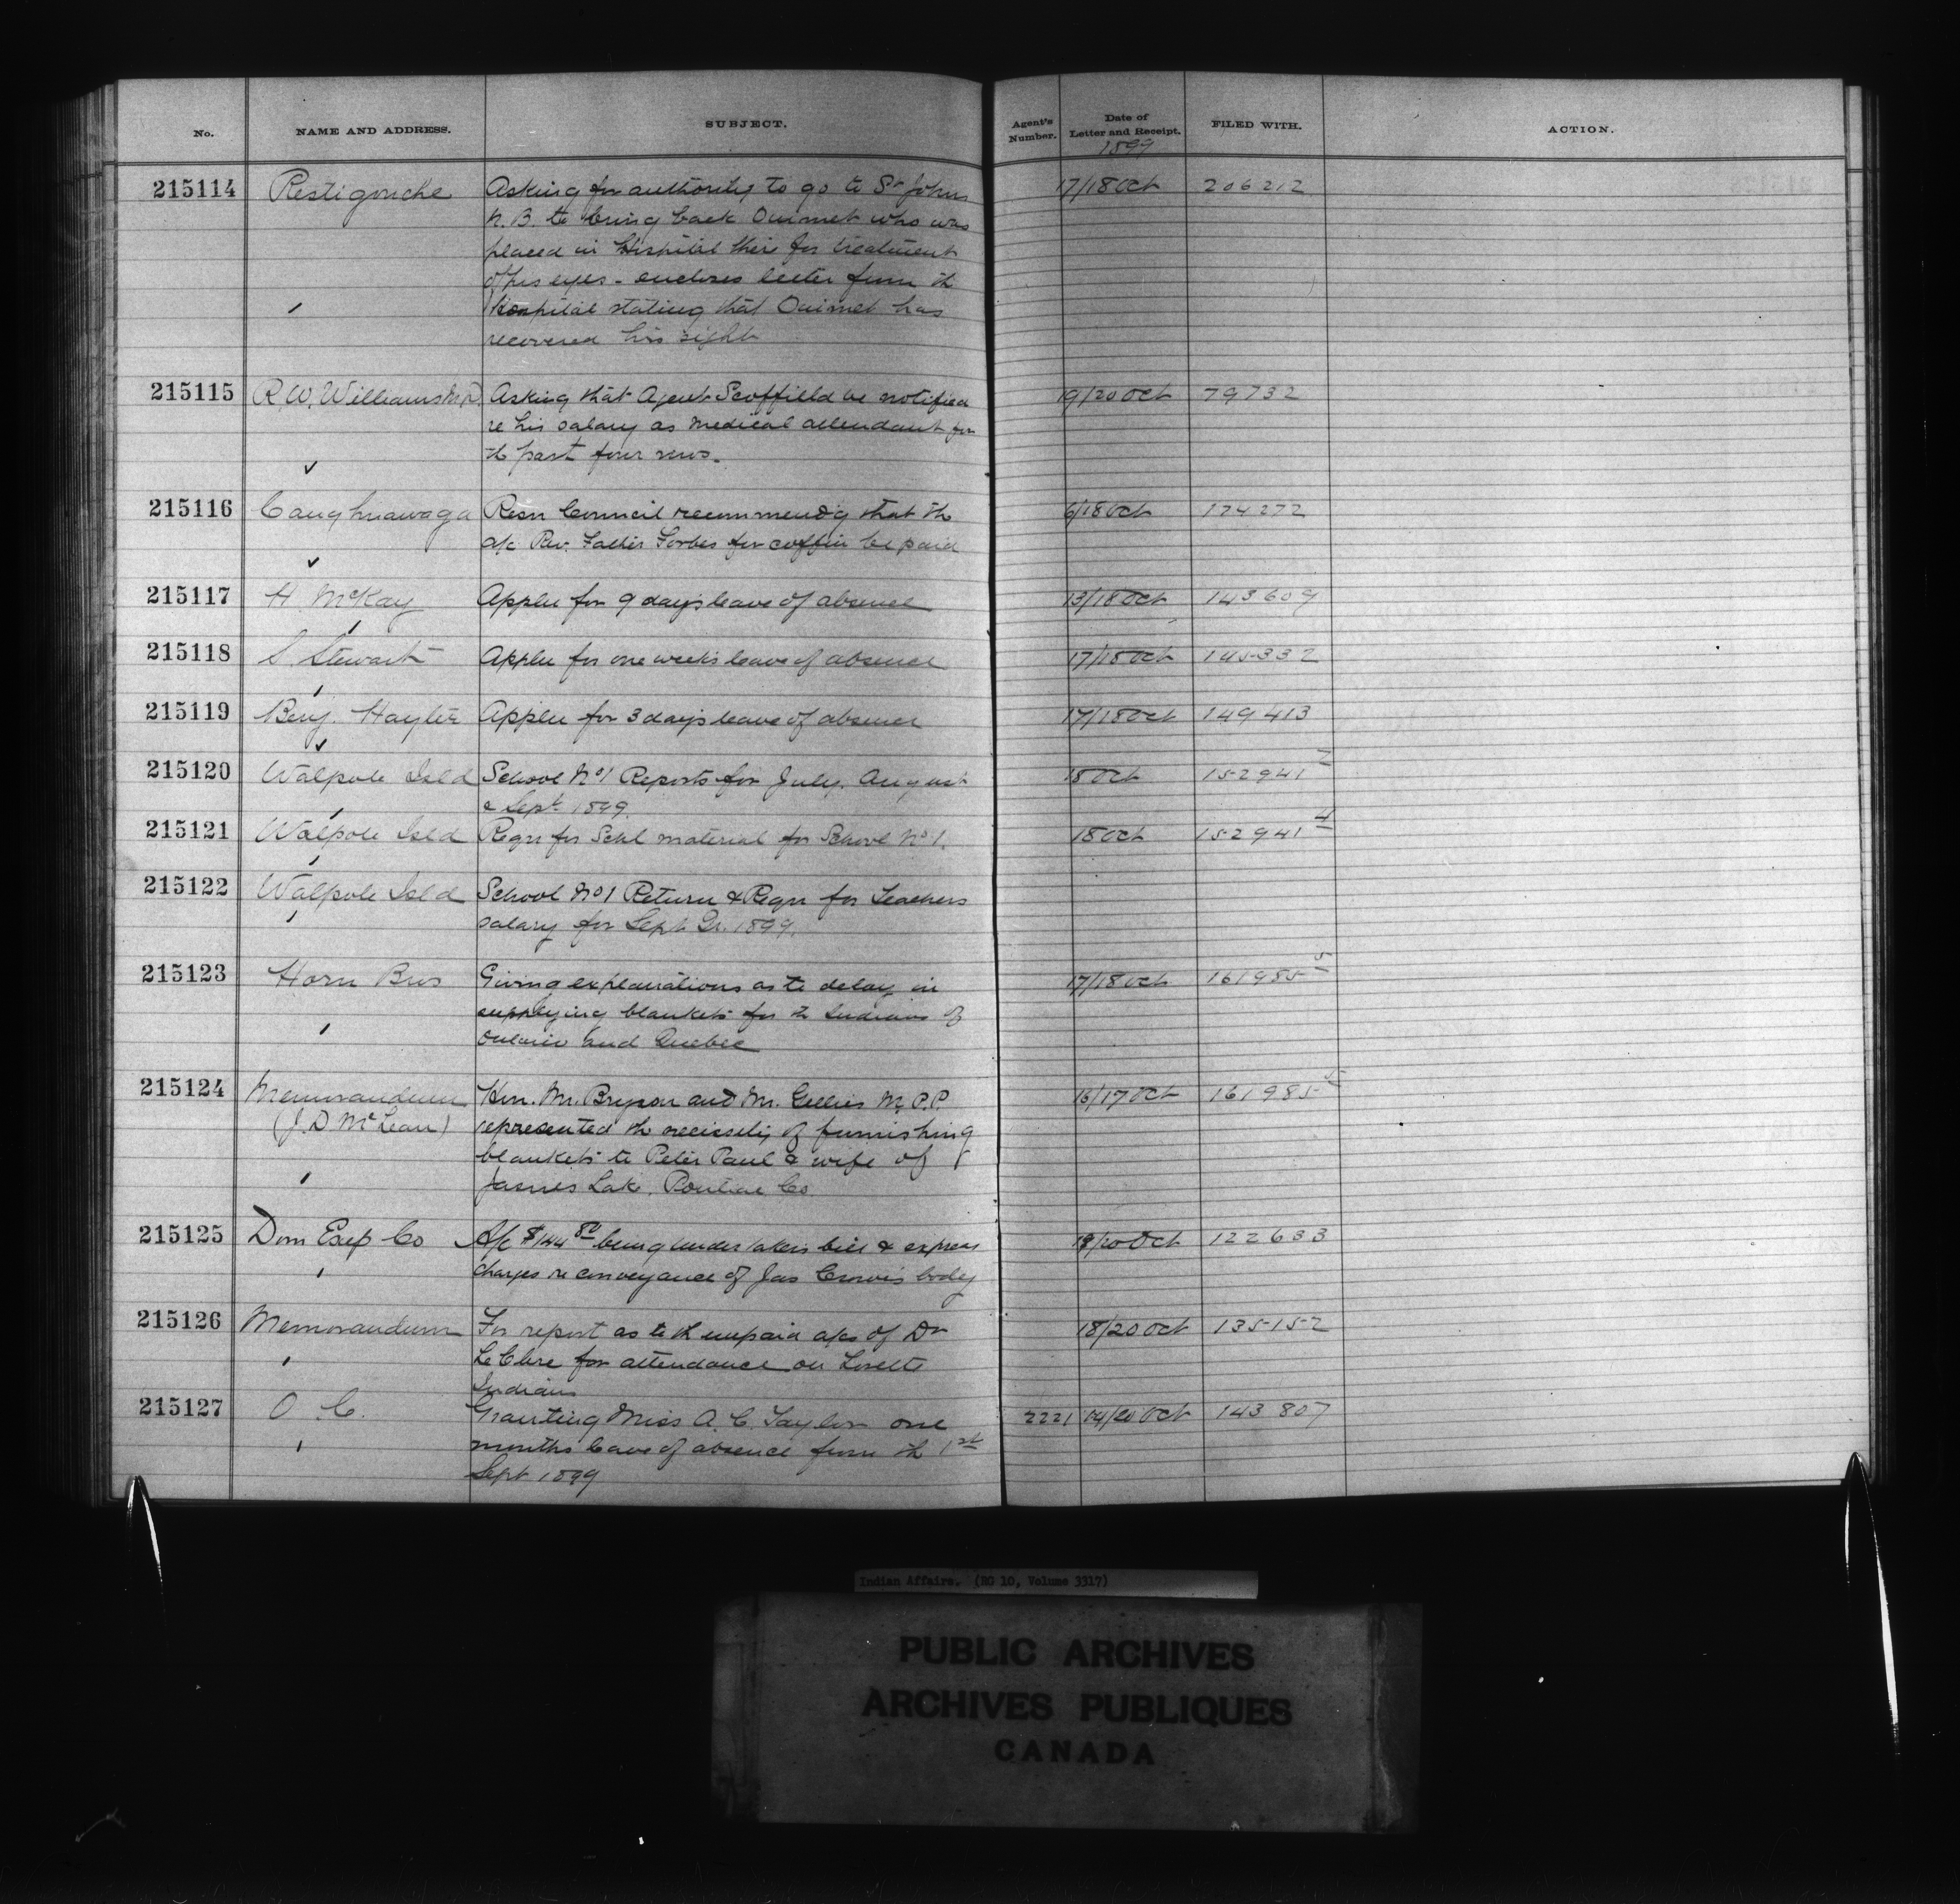 No. NAME AND ADDRESS. SUBJECT. Agent's Number. Date of Letter and Receipt. FILED WITH. ACTION.
1899
215114 Restigouche Asking for authority to go to St Johns 17/18 Oct 206212
N.B. to bring back Ouimet who was
placed in Hospital their for treatment
of his eyes - encloses letter from th
Hospital stating that Ouimet has
recovered his sight
215115 R.W. Williams M.D. Asking that Agent Scoffield be notified 19/20 Oct 79732
re his salary as medical attendant for
th past four mos.
215116 Caughnawaga Resn Council recommendg that th 6/18 Oct 174272
a/c Rev. Father Forbes for coffin be paid
215117 H. McKay Applu for 9 days leave of absence 13/18 Oct 143609
215118 S. Stewart Applu for one weeks leave of absence 17/18 Oct 145332
215119 Benj. Hayter Applu for 3 days leave of absence 17/18 Oct 149413
215120 Walpole Isld School No 1 Reports for July, August 18 Oct 152941 7
& Sept 1899.
215121 Walpole Isld Reqn for Schl material for School No 1. 18 Oct 152941 4
215122 Walpole Isld School No 1 Return & Reqn for Teachers
salary for Sept Qr. 1899.
215123 Horn Bros Giving explanations as to delay in 17/18 Oct 161985 5
supplying blankets for th Indians of
Ontario and Quebec
215124 Memorandum Hon. Mr. Bryson and Mr. Gillies M.P.P. 16/17 Oct 161985
(J.D McLean) represented th necissity of furnishing
blankets to Peter Paul & wife of
James Lake, Pontiac Co
215125 Dom Exp Co A/c $144 80 being undertakers bill & express 19/20 Oct 122633
charges re conveyance of Jas Crow's body
215126 Memorandum For report as to th unpaid a/cs of Dr 18/20 Oct 135152
LeClere for attendance on Lorette
Indians
215127 O. C. Granting Miss A. C. Taylor one 2221 04/20 Oct 143807
months leave of absence from th 1st
Sept 1899
Indian Affairs. (RG 10, Volume 3317)
PUBLIC ARCHIVES
ARCHIVES PUBLIQUES
CANADA